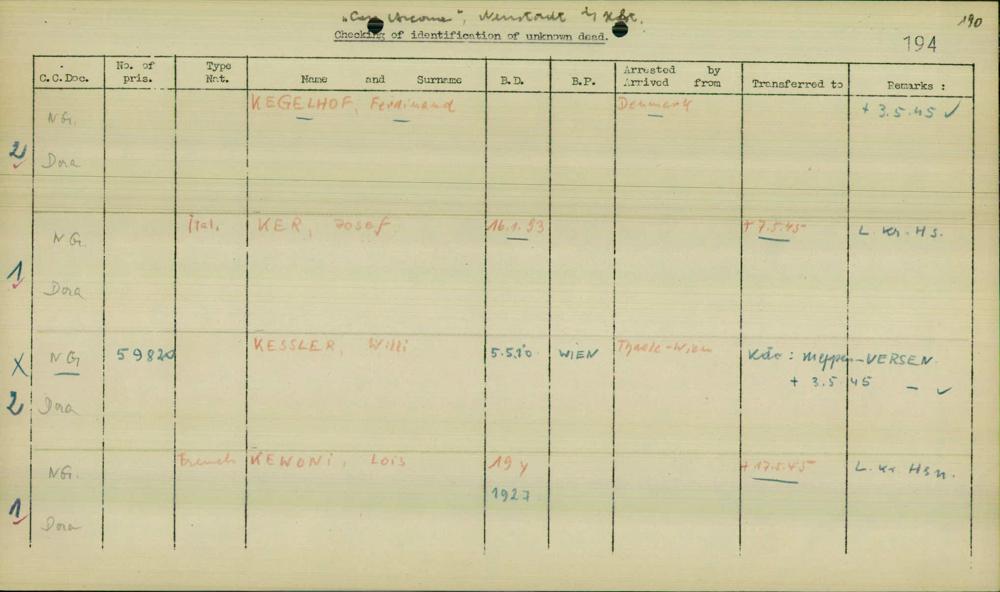 "Cap Arcona", Neustadt i/Hst.
190
Checking of identification of unknown dead.
194
C.C.Doc. No. of pris. Type Nat. Name and Surname B.D. B.P. Arrested by Arrived from Transferred to Remarks :
NG. KEGELHOF, Ferdinand Denmark + 3.5.45 ✓
2 Dora
NG. Ital. KER, Josef 16.1.93 + 7.5.45 L. Kr. Hs.
1 Dora
X NG 59820 KESSLER, Willi 5.5.10. WIEN Kdo: Meppen-VERSEN
+ 3.5.45 – ✓
2 Dora
NG. French KEWONI, Lois 19 y + 17.5.45 L. Kr. Hsn.
1927
1 Dora